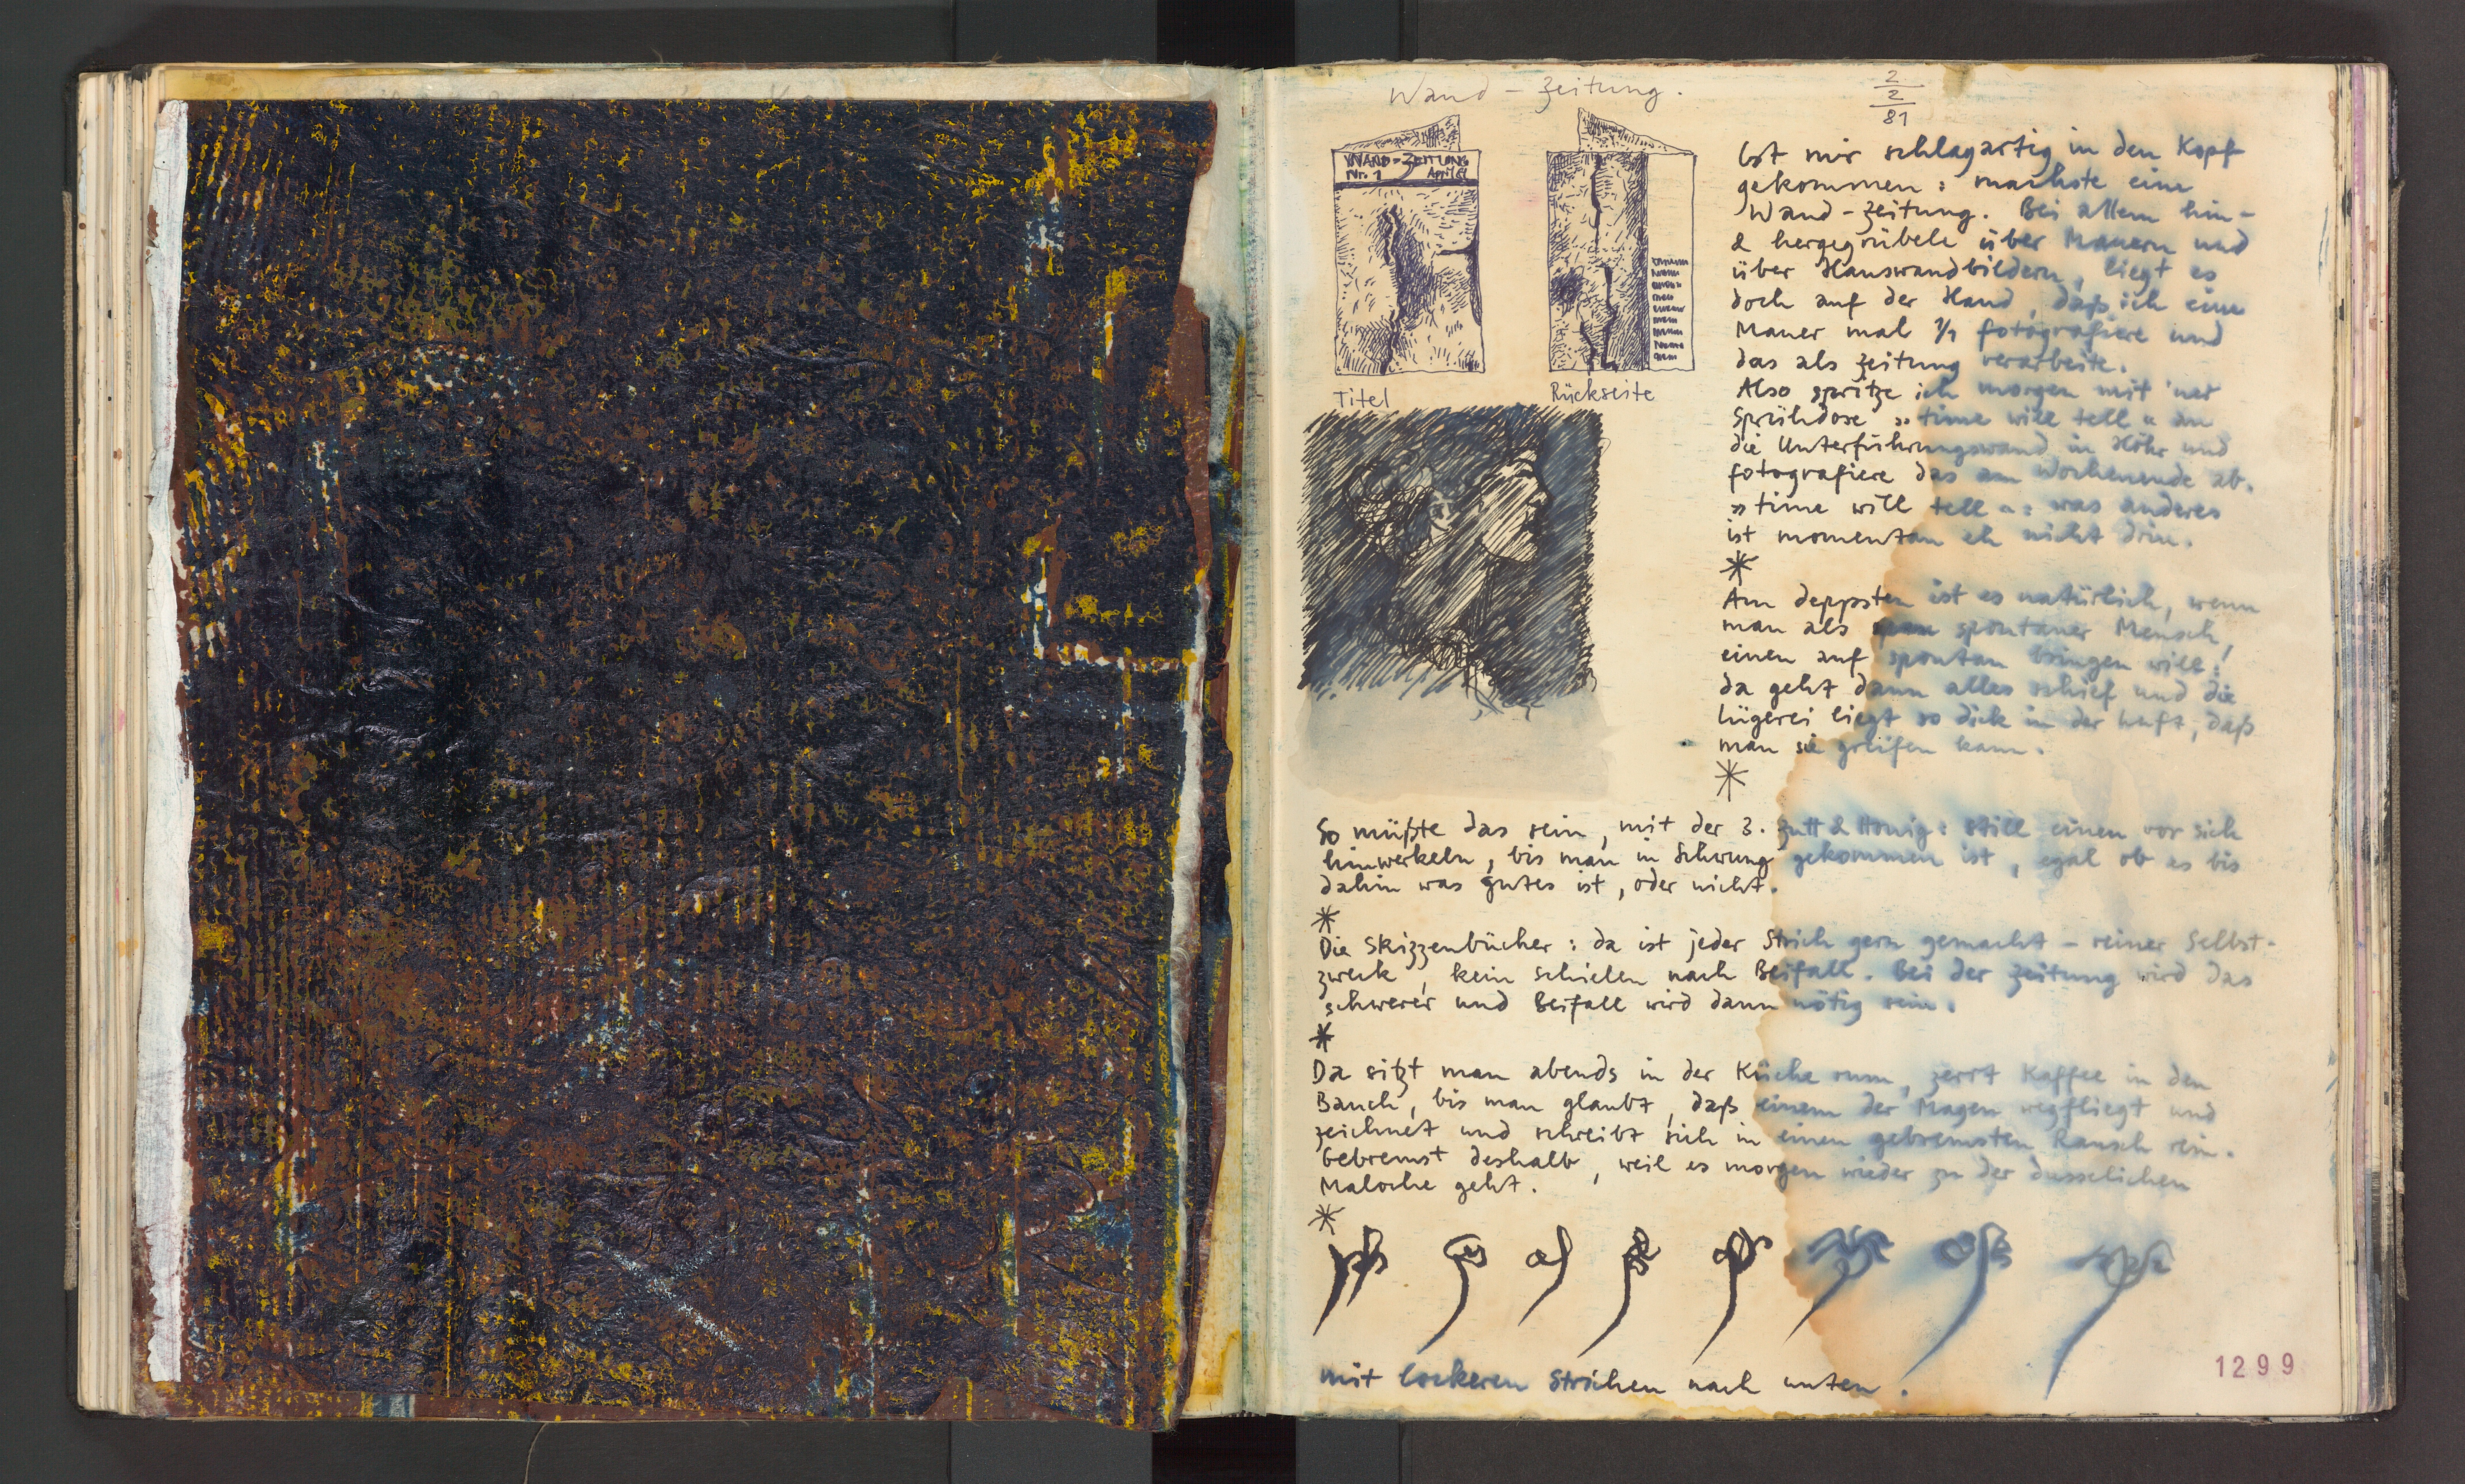 Wand-Zeitung.
2
2
81
WAND-ZEITUNG
Nr. 1 April 81
Titel
Rückseite
Ist mir schlagartig in den Kopf
gekommen: machste eine
Wand-Zeitung. Bei allem hin-
& hergegrübele über Mauern und
über Hauswandbildern, liegt es
doch auf der Hand, daß ich eine
Mauer mal 1/1 fotografiere und
das als Zeitung verarbeite.
Also spritze ich morgen mit 'ner
Sprühdose »time will tell« an
die Unterführungswand in Höhr und
fotografiere das am Wochenende ab.
»time will tell«: was anderes
ist momentan eh nicht drin.
*
Am deppsten ist es natürlich, wenn
man als spontaner Mensch,
einen auf spontan bringen will:
da geht dann alles schief und die
Lügerei liegt so dick in der Luft, daß
man sie greifen kann.
*
So müßte das sein, mit der 3. Zutt & Honig: still einen vor sich
hinwerkeln, bis man in Schwung gekommen ist, egal ob es bis
dahin was gutes ist, oder nicht.
*
Die Skizzenbücher: da ist jeder Strich gern gemacht – reiner Selbst-
zweck, kein schielen nach Beifall. Bei der Zeitung wird das
schwerer und Beifall wird dann nötig sein.
*
Da sitzt man abends in der Küche rum, zerrt Kaffee in den
Bauch, bis man glaubt, daß einem der Magen wegfliegt und
zeichnet und schreibt sich in einen gebremsten Rausch rein.
Gebremst deshalb, weil es morgen wieder zu der dusselichen
Maloche geht.
*
mit lockeren Strichen nach unten.
1299